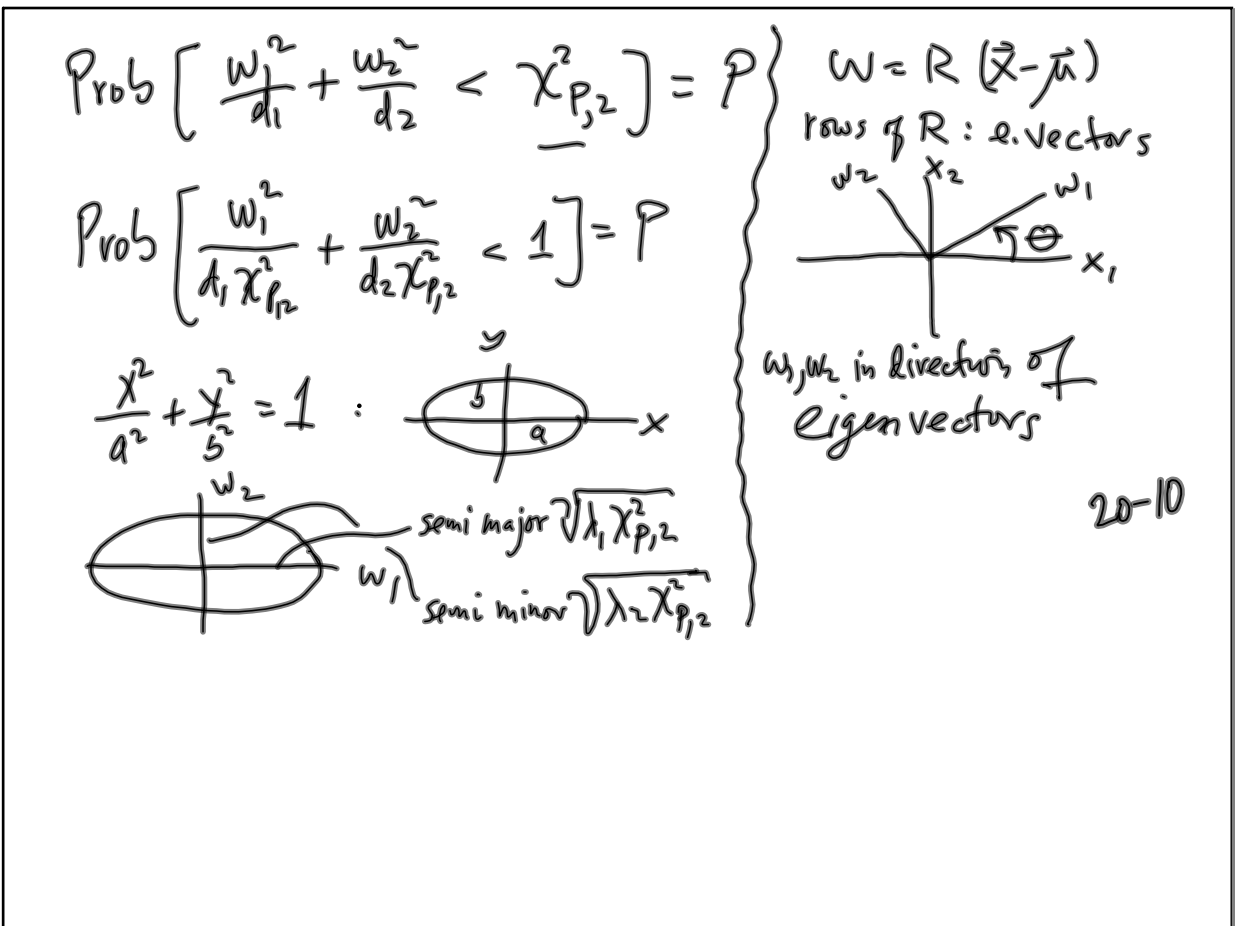 Prob [ w₁²/d₁ + w₂²/d₂ < χ²_{P,2} ] = P
Prob [ w₁²/(d₁ χ²_{P,2}) + w₂²/(d₂ χ²_{P,2}) < 1 ] = P
x²/a² + y²/b² = 1 :
y
b
a
x
w₂
w₁
semi major √(λ₁ χ²_{P,2})
semi minor √(λ₂ χ²_{P,2})
W = R (x⃗ - μ⃗)
rows of R : e.vectors
w₂
x₂
w₁
θ
x₁
w₁, w₂ in direction of
eigenvectors
20-10